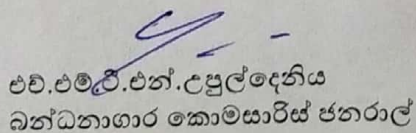 එච්.එම්.ටී.එන්.උපුල්දෙනිය
බන්ධනාගාර කොමසාරිස් ජනරාල්